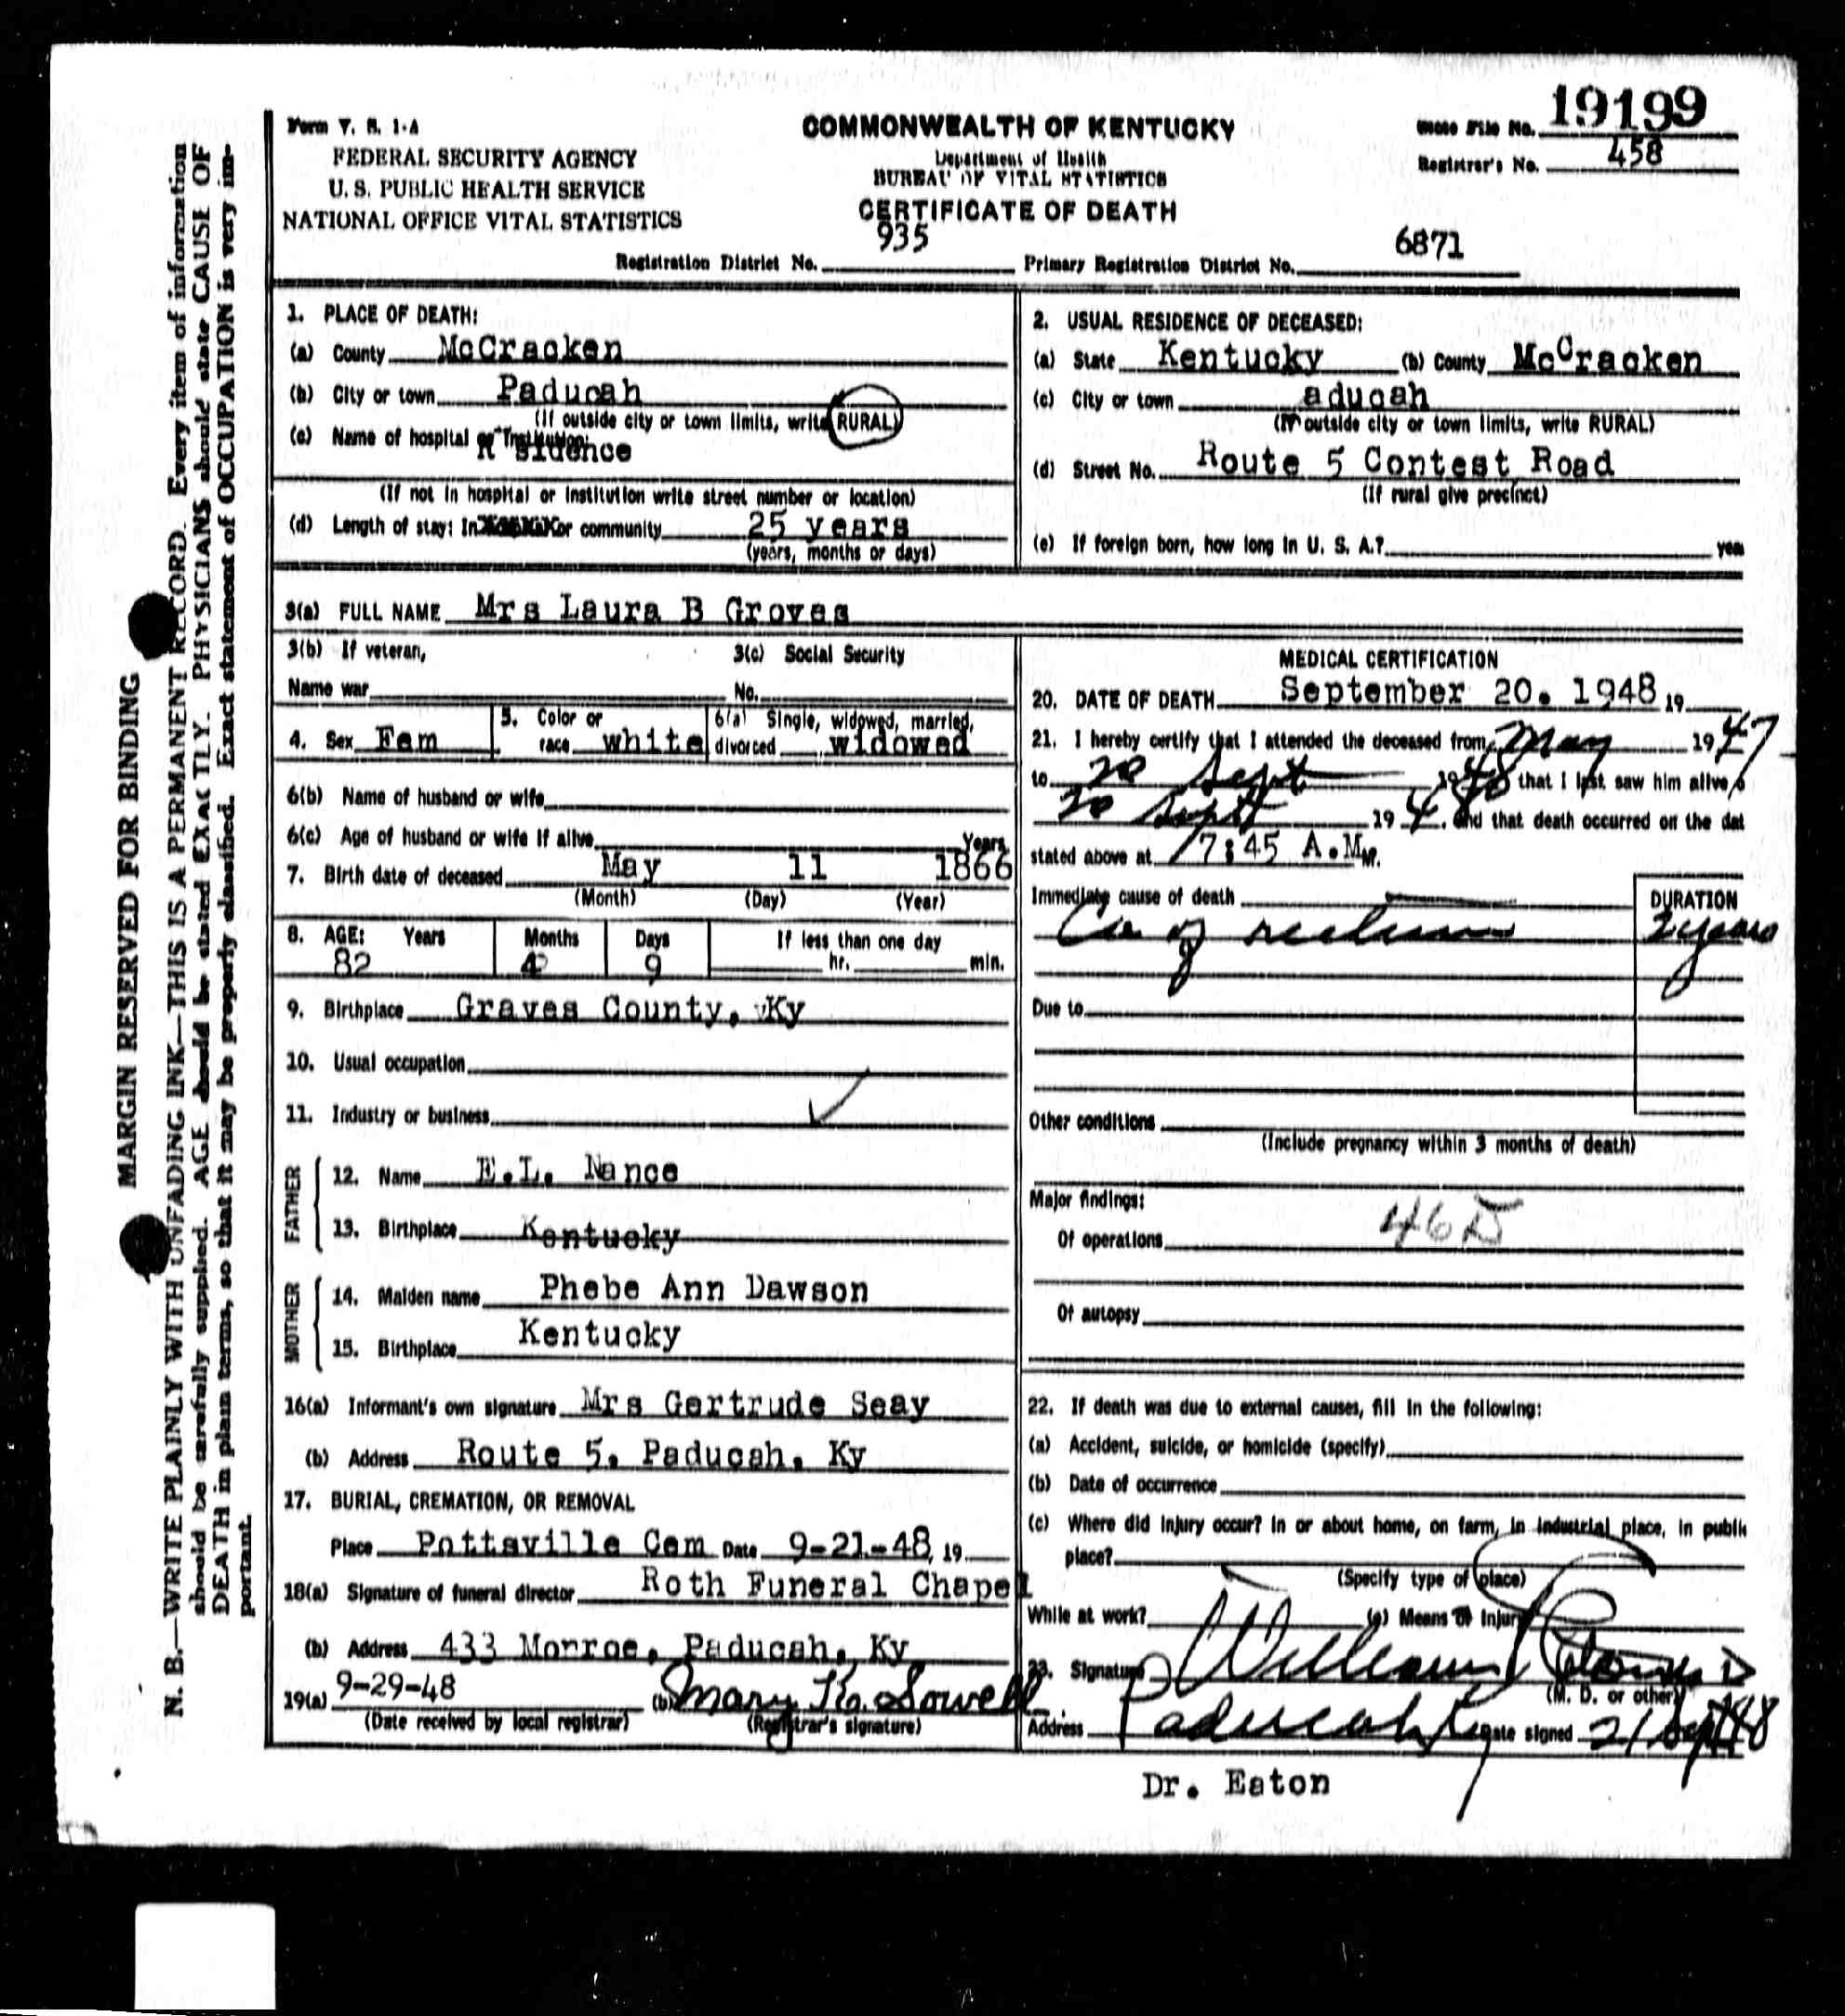 Form V. S. 1-A
FEDERAL SECURITY AGENCY
U. S. PUBLIC HEALTH SERVICE
NATIONAL OFFICE VITAL STATISTICS
COMMONWEALTH OF KENTUCKY
Department of Health
BUREAU OF VITAL STATISTICS
CERTIFICATE OF DEATH
State File No. 19199
Registrar's No. 458
Registration District No. 935
Primary Registration District No. 6871
1. PLACE OF DEATH:
(a) County McCracken
(b) City or town Paducah
(If outside city or town limits, write RURAL)
(c) Name of hospital or Institution:
R sidence
(If not in hospital or institution write street number or location)
(d) Length of stay: In or community 25 years
(years, months or days)
2. USUAL RESIDENCE OF DECEASED:
(a) State Kentucky (b) County McCracken
(c) City or town aducah
(If outside city or town limits, write RURAL)
(d) Street No. Route 5 Contest Road
(If rural give precinct)
(e) If foreign born, how long in U. S. A.? yea
3(a) FULL NAME Mrs Laura B Groves
3(b) If veteran,
Name war
3(c) Social Security
No.
4. Sex Fem
5. Color or
race white
6(a) Single, widowed, married,
divorced widowed
6(b) Name of husband or wife
6(c) Age of husband or wife if alive Years
7. Birth date of deceased May 11 1866
(Month) (Day) (Year)
8. AGE: Years Months Days If less than one day
82 4 9 hr. min.
9. Birthplace Graves County, Ky
10. Usual occupation
11. Industry or business
FATHER
12. Name E.L. Nance
13. Birthplace Kentucky
MOTHER
14. Maiden name Phebe Ann Dawson
15. Birthplace Kentucky
16(a) Informant's own signature Mrs Gertrude Seay
(b) Address Route 5, Paducah, Ky
17. BURIAL, CREMATION, OR REMOVAL
Place Pottsville Cem Date 9-21-48, 19
18(a) Signature of funeral director Roth Funeral Chapel
(b) Address 433 Monroe, Paducah, Ky
19(a) 9-29-48 (b) Mary K. Sowell
(Date received by local registrar) (Registrar's signature)
MEDICAL CERTIFICATION
20. DATE OF DEATH September 20. 1948 19
21. I hereby certify that I attended the deceased from May 1947
to 20 Sept 1948 that I last saw him alive o
20 Sept 194 , and that death occurred on the dat
stated above at 7:45 A.M.
Immediate cause of death
DURATION
Ca of rectum 2 years
Due to
Other conditions
(Include pregnancy within 3 months of death)
Major findings:
46D
Of operations
Of autopsy
22. If death was due to external causes, fill in the following:
(a) Accident, suicide, or homicide (specify)
(b) Date of occurrence
(c) Where did injury occur? In or about home, on farm, in industrial place, in public
place?
(Specify type of place)
While at work? (e) Means of Injury
23. Signature William
(M. D. or other)
Address Paducah Ky Date signed 21 Sept 48
Dr. Eaton
MARGIN RESERVED FOR BINDING
N. B.—WRITE PLAINLY WITH UNFADING INK—THIS IS A PERMANENT RECORD. Every item of information
should be carefully supplied. AGE should be stated EXACTLY. PHYSICIANS should state CAUSE OF
DEATH in plain terms, so that it may be properly classified. Exact statement of OCCUPATION is very im-
portant.